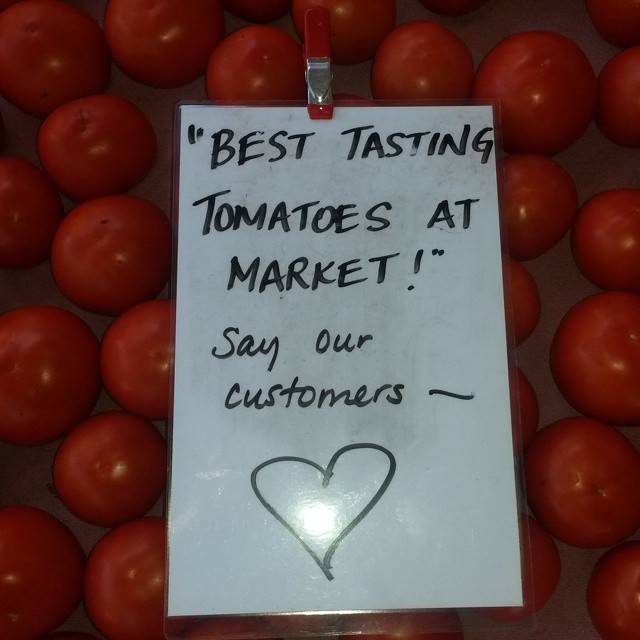 "BEST TASTING
TOMATOES AT
MARKET!"
Say our
customers ~